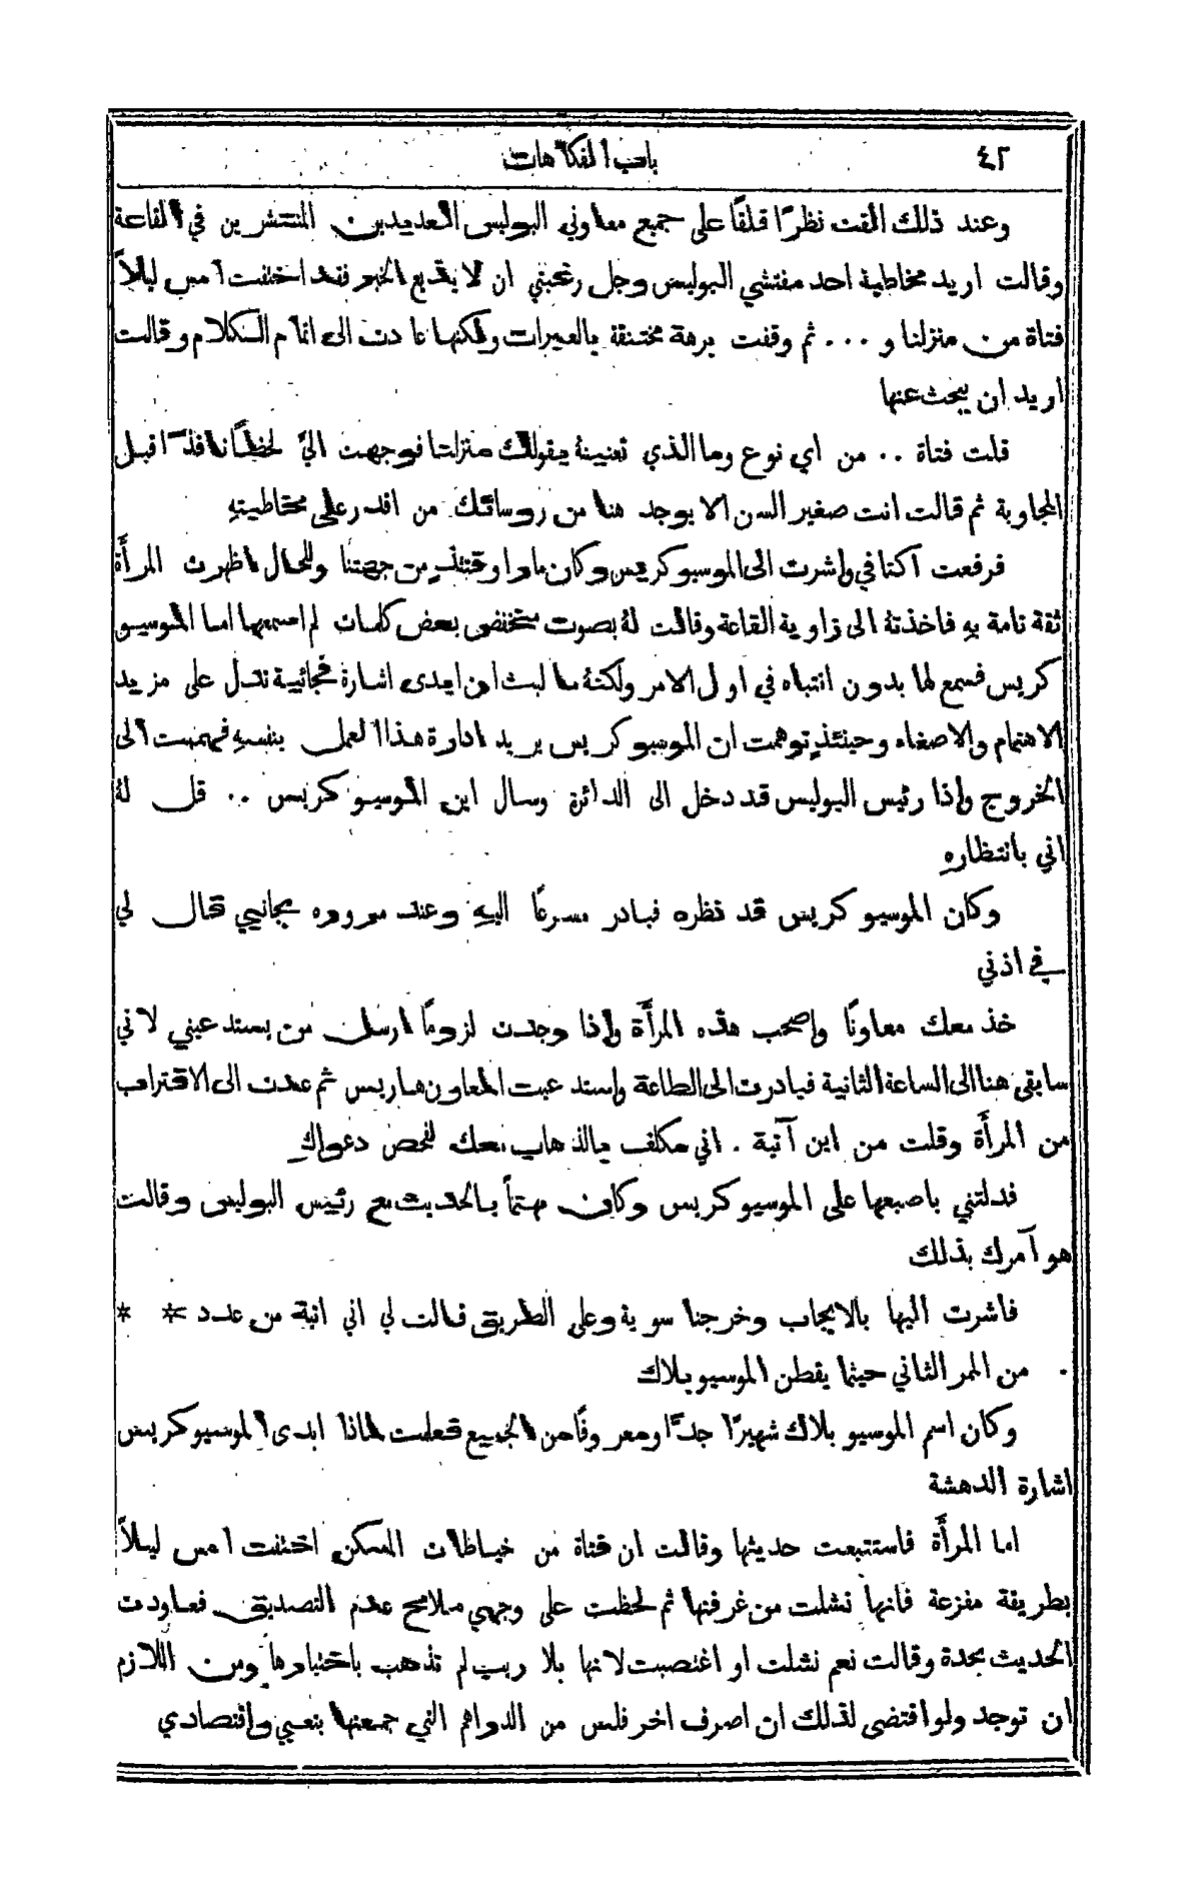 ٤٢
باب الفكاهات
وعند ذلك القت نظرًا قلقًا على جميع معاوني البوليس العديدين المنتشرين في القاعة
وقالت اريد مخاطبة احد مفتشي البوليس وجل رغبتي ان لا يذيع الخبر فقد اختفت امس ليلاً
فتاة من منزلنا و ... ثم وقفت برهة مختنقة بالعبرات ولكنها عادت الى اتمام الكلام وقالت
اريد ان يبحث عنها
قلت فتاة .. من اي نوع وما الذي تعنينهُ بقولك منزلنا فوجهت اليَّ لحظًا نافذًا قبل
المجاوبة ثم قالت انت صغير السن الا يوجد هنا من روسائك من اقدر على مخاطبتهِ
فرفعت اكتافي واشرت الى الموسيو كريس وكان مارا وقتئذٍ من جهتنا وللحال اظهرت المرأَة
ثقة تامة بهِ فاخذتهُ الى زاوية القاعة وقالت لهُ بصوت منخفض بعض كلمات لم اسمعها اما الموسيو
كريس فسمع لها بدون انتباه في اول الامر ولكنهُ ما لبث ان ابدى اشارة فجائية تدل على مزيد
الاهتمام والاصغاء وحينئذٍ توهمت ان الموسيو كريس يريد ادارة هذا العمل بنفسهِ فهممت الى
الخروج واذا رئيس البوليس قد دخل الى الدائرة وسال اين الموسيو كريس .. قل لهُ
اني بانتظارهِ
وكان الموسيو كريس قد نظره فبادر مسرعًا اليهِ وعند مروره بجانبي قال لي
في اذني
خذ معك معاونًا واصحب هذه المرأَة واذا وجدت لزومًا ارسل من يستدعيني لاني
سابقى هنا الى الساعة الثانية فبادرت الى الطاعة واستدعيت المعاون هاريس ثم عدت الى الاقتراب
من المرأَة وقلت من اين آتية . اني مكلف بالذهاب معك لفحص دعواكِ
فدلتني باصبعها على الموسيو كريس وكان مهتمًا بالحديث مع رئيس البوليس وقالت
هو آمرك بذلك
فاشرت اليها بالايجاب وخرجنا سوية وعلى الطريق قالت لي اني اتية من عدد * *
من الممر الثاني حيثما يقطن الموسيو بلاك
وكان اسم الموسيو بلاك شهيرًا جدًّا ومعروفًا من الجميع فعلمت لماذا ابدى الموسيو كريس
اشارة الدهشة
اما المرأَة فاستتبعت حديثها وقالت ان فتاة من خياطات المسكن اختفت امس ليلاً
بطريقة مفزعة فانها نشلت من غرفتها ثم لحظت على وجهي ملامح عدم التصديق فعاودت
الحديث بحدة وقالت نعم نشلت او اغتصبت لانها بلا ريب لم تذهب باختيارها ومن اللازم
ان توجد ولو اقتضى لذلك ان اصرف اخر فلس من الدراهم التي جمعتها بتعبي واقتصادي